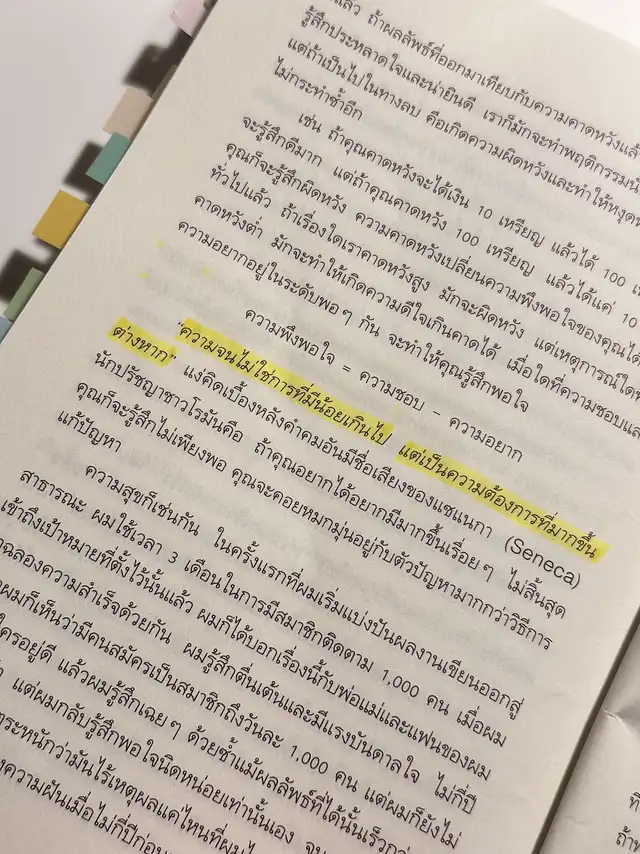 แล้ว ถ้าผลลัพธ์ที่ออกมาเทียบกับความคาดหวังแล้ว
รู้สึกประหลาดใจและน่ายินดี เราก็มักจะทำพฤติกรรมนั้น
แต่ถ้าเป็นไปในทางลบ คือเกิดความผิดหวังและทำให้หงุด
ไม่กระทำซ้ำอีก
เช่น ถ้าคุณคาดหวังจะได้เงิน 10 เหรียญ แล้วได้ 100 เห
จะรู้สึกดีมาก แต่ถ้าคุณคาดหวัง 100 เหรียญ แล้วได้แค่ 10
คุณก็จะรู้สึกผิดหวัง ความคาดหวังเปลี่ยนความพึงพอใจของคุณได้
ทั่วไปแล้ว ถ้าเรื่องใดเราคาดหวังสูง มักจะผิดหวัง แต่เหตุการณ์ใดที่
คาดหวังต่ำ มักจะทำให้เกิดความดีใจเกินคาดได้ เมื่อใดที่ความชอบและ
ความอยากอยู่ในระดับพอๆ กัน จะทำให้คุณรู้สึกพอใจ
ความพึงพอใจ = ความชอบ – ความอยาก
“ความจนไม่ใช่การที่มีน้อยเกินไป แต่เป็นความต้องการที่มากขึ้น
ต่างหาก” แง่คิดเบื้องหลังคำคมอันมีชื่อเสียงของแซแนกา (Seneca)
นักปรัชญาชาวโรมันคือ ถ้าคุณอยากได้อยากมีมากขึ้นเรื่อยๆ ไม่สิ้นสุด
คุณก็จะรู้สึกไม่เพียงพอ คุณจะคอยหมกมุ่นอยู่กับตัวปัญหามากกว่าวิธีการ
แก้ปัญหา
ความสุขก็เช่นกัน ในครั้งแรกที่ผมเริ่มแบ่งปันผลงานเขียนออกสู่
สาธารณะ ผมใช้เวลา 3 เดือนในการมีสมาชิกติดตาม 1,000 คน เมื่อผม
เข้าถึงเป้าหมายที่ตั้งไว้นั้นแล้ว ผมก็ได้บอกเรื่องนี้กับพ่อแม่และแฟนของผม
ฉลองความสำเร็จด้วยกัน ผมรู้สึกตื่นเต้นและมีแรงบันดาลใจ ไม่กี่ปี
ผมก็เห็นว่ามีคนสมัครเป็นสมาชิกถึงวันละ 1,000 คน แต่ผมก็ยังไม่
ใครอยู่ดี แล้วผมรู้สึกเฉยๆ ด้วยซ้ำแม้ผลลัพธ์ที่ได้นั้นเร็วกว่า
แต่ผมกลับรู้สึกพอใจนิดหน่อยเท่านั้นเอง จน
ตระหนักว่ามันไร้เหตุผลแค่ไหนที่ผมไ
ความฝันเมื่อไม่กี่ปีก่อน
ถ้า